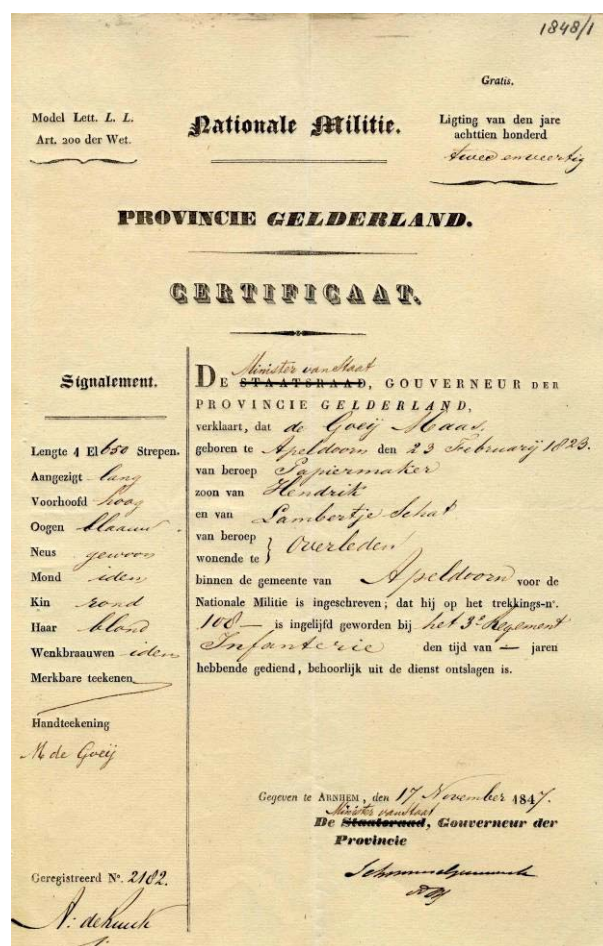 1848/1
Gratis.
Model Lett. L. L.
Art. 200 der Wet.
Nationale Militie.
Ligting van den jare
achttien honderd
twee en veertig
PROVINCIE GELDERLAND.
CERTIFICAAT.
Signalement.
Lengte 1 El 650 Strepen.
Aangezigt lang
Voorhoofd hoog
Oogen blaauw
Neus gewoon
Mond idem
Kin rond
Haar blond
Wenkbraauwen idem
Merkbare teekenen
Handteekening
M de Goeij
Geregistreerd No. 2182.
Minister van Staat
DE STAATSRAAD, GOUVERNEUR DER
PROVINCIE GELDERLAND,
verklaart, dat de Goeij Maas
geboren te Apeldoorn den 23 Februarij 1823.
van beroep Papiermaker
zoon van Hendrik
en van Lambertje Schat
van beroep
wonende te } Overleden
binnen de gemeente van Apeldoorn voor de
Nationale Militie is ingeschreven; dat hij op het trekkings-no.
108 — is ingelijfd geworden bij het 3e Regement
Infanterie den tijd van — jaren
hebbende gediend, behoorlijk uit de dienst ontslagen is.
Gegeven te ARNHEM, den 17 November 1847.
Minister van Staat
De Staatsraad, Gouverneur der
Provincie